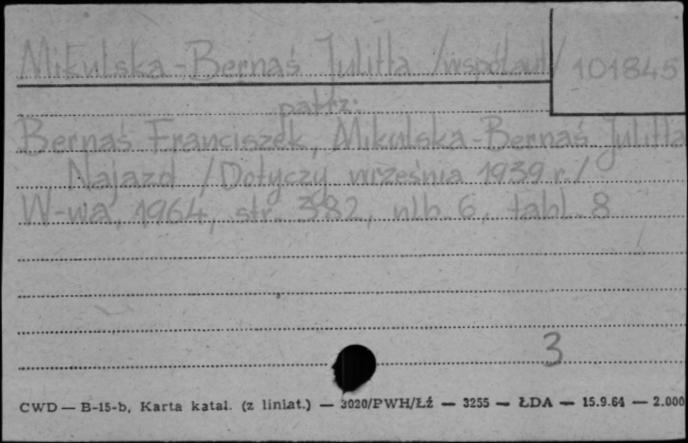 Mikulska-Bernaś Julitta /współaut/ 101845
patrz:
Bernaś Franciszek, Mikulska-Bernaś Julitta
Najazd /Dotyczy września 1939 r./
W-wa, 1964, str. 382, nlb. 6, tabl. 8
3
CWD — B-15-b, Karta katal. (z liniat.) — 3020/PWH/Łź — 3255 — ŁDA — 15.9.64 — 2.000